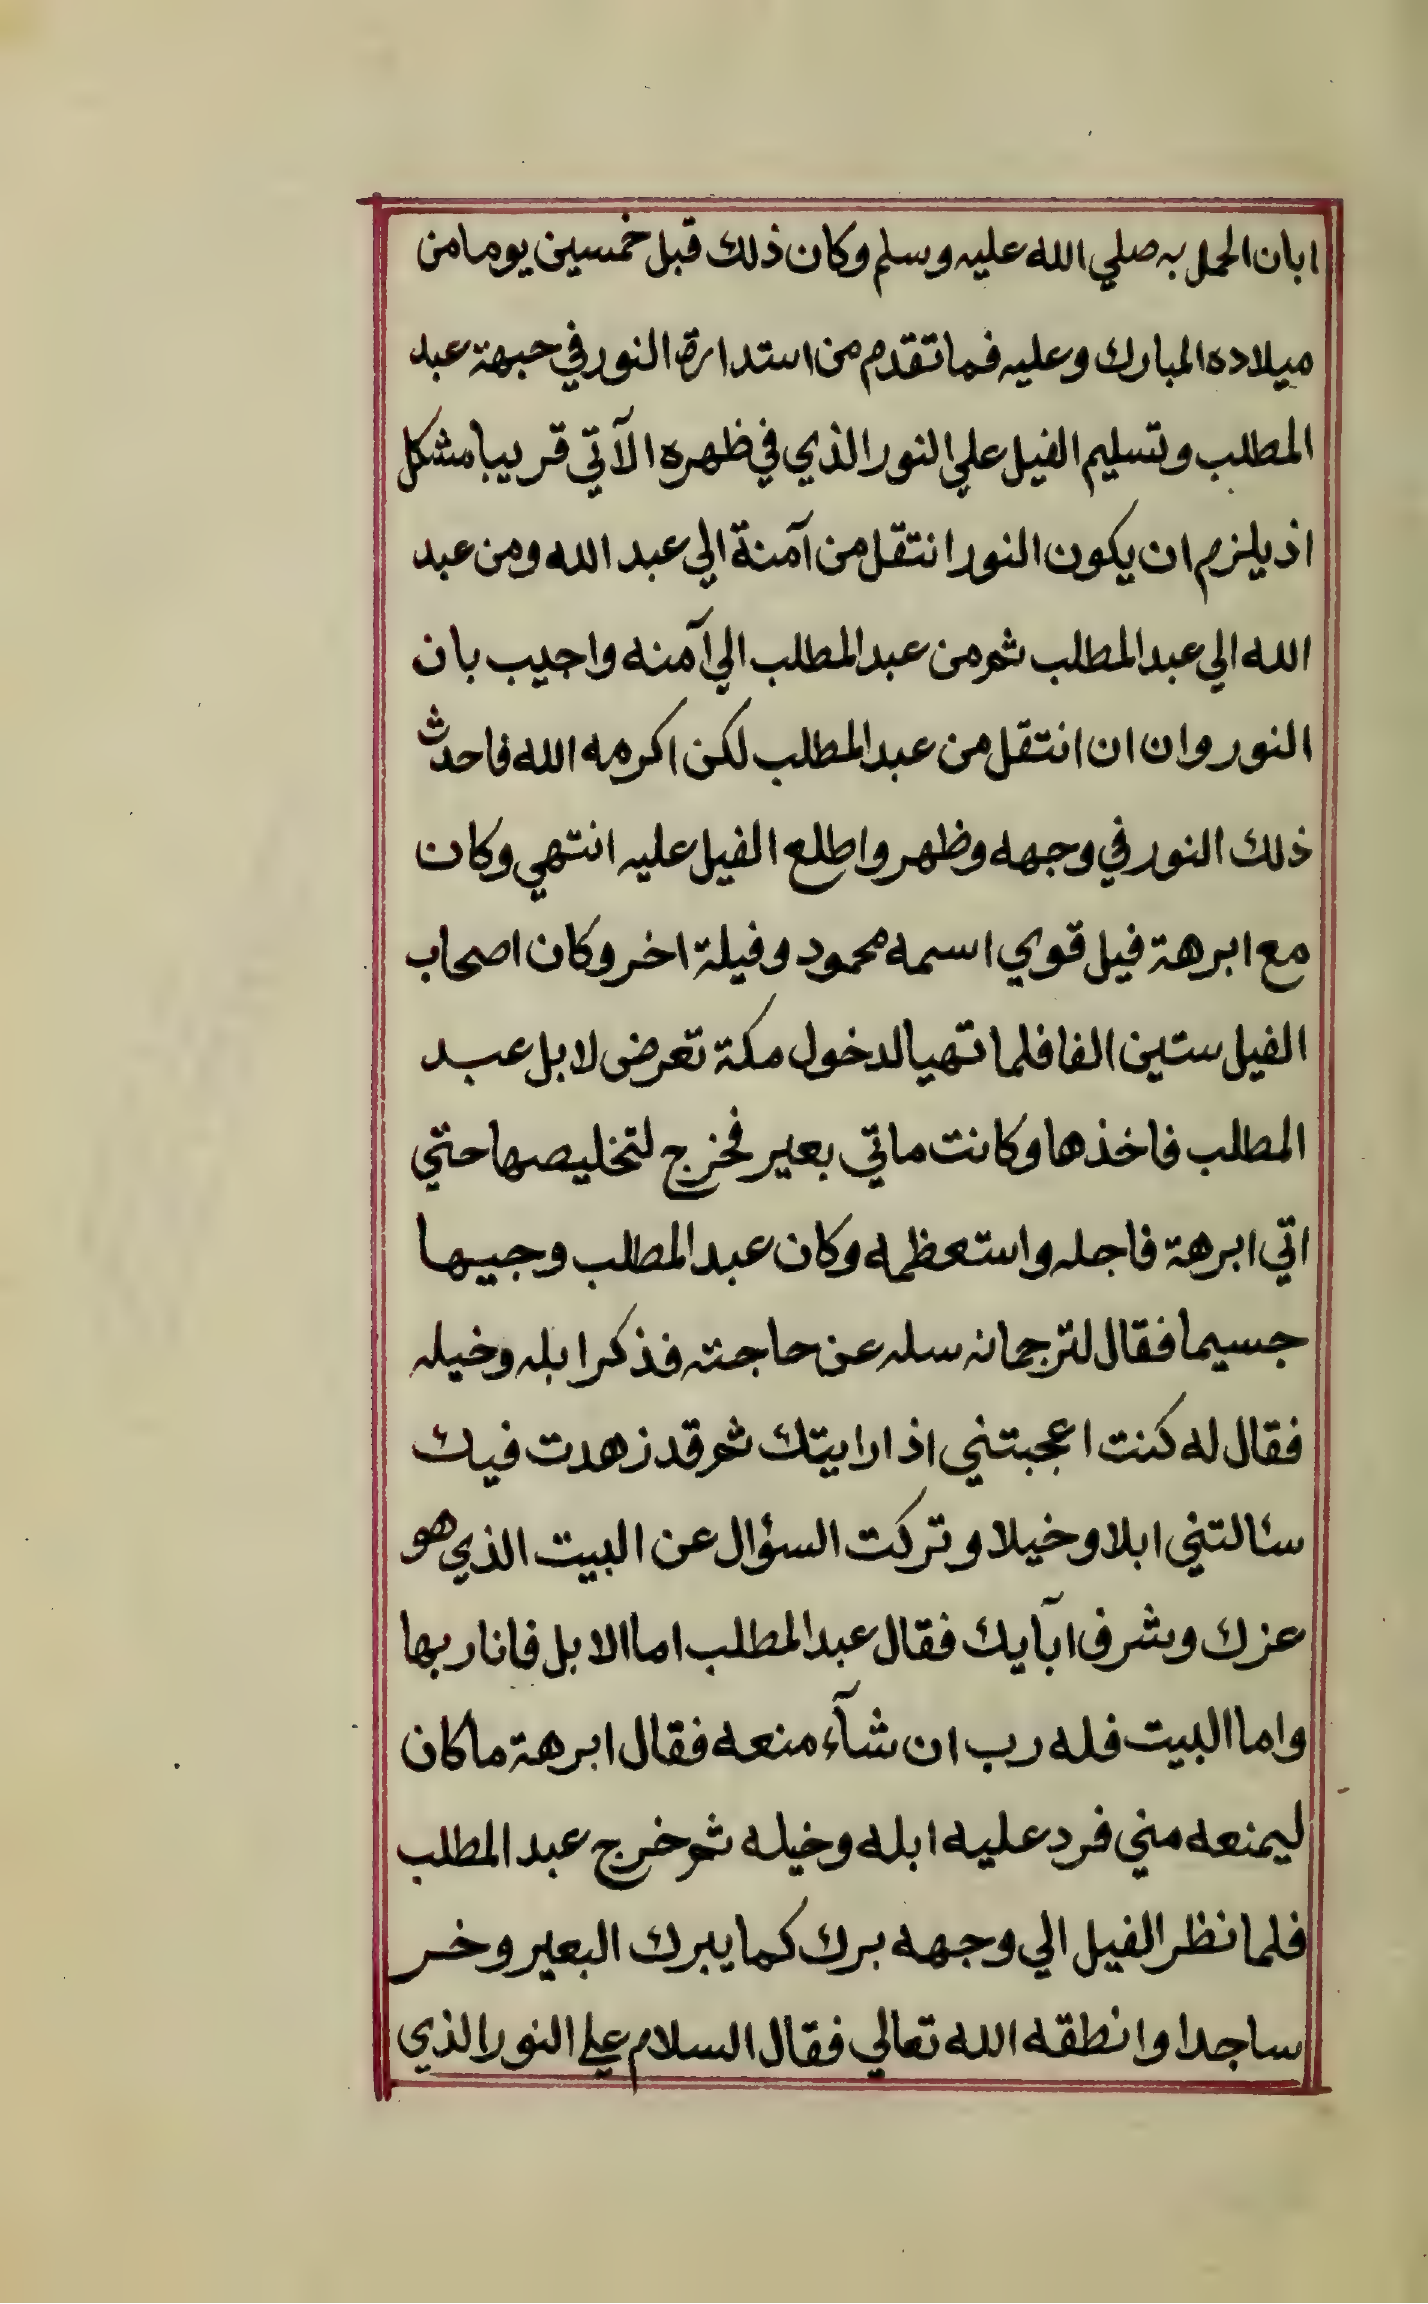 ابان الحمل به صلي الله عليه وسلم وكان ذلك قبل خمسين يوما من
ميلاده المبارك وعليه فما تقدم من استدارة النور في جبهة عبد
المطلب وتسليم الفيل علي النور الذي في ظهره الآتي قريبا مشكل
اذ يلزم ان يكون النور انتقل من آمنة الي عبد الله ومن عبد
الله الي عبد المطلب ثم من عبد المطلب الي آمنه واجيب بان
النور وان ان انتقل من عبد المطلب لكن اكرمه الله فاحدث
ذلك النور في وجهه وظهر واطلع الفيل عليه انتهي وكان
مع ابرهة فيل قوي اسمه محمود وفيلة اخر وكان اصحاب
الفيل ستين الفا فلما تهيا لدخول مكة تعرض لابل عبد
المطلب فاخذها وكانت ماتي بعير فخرج لتخليصها حتي
اتي ابرهة فاجله واستعظمه وكان عبد المطلب وجيها
جسيما فقال لترجمانه سله عن حاجته فذكر ابله وخيله
فقال له كنت اعجبتني اذا رايتك ثم قد زهدت فيك
سئالتني ابلا وخيلا وتركت السؤال عن البيت الذي هو
عزك وشرف ابآيك فقال عبد المطلب اما الابل فانا ربها
واما البيت فله رب ان شآء منعه فقال ابرهة ما كان
ليمنعه مني فرد عليه ابله وخيله ثم خرج عبد المطلب
فلما نظر الفيل الي وجهه برك كما يبرك البعير وخر
ساجدا وانطقه الله تعالي فقال السلام علي النور الذي